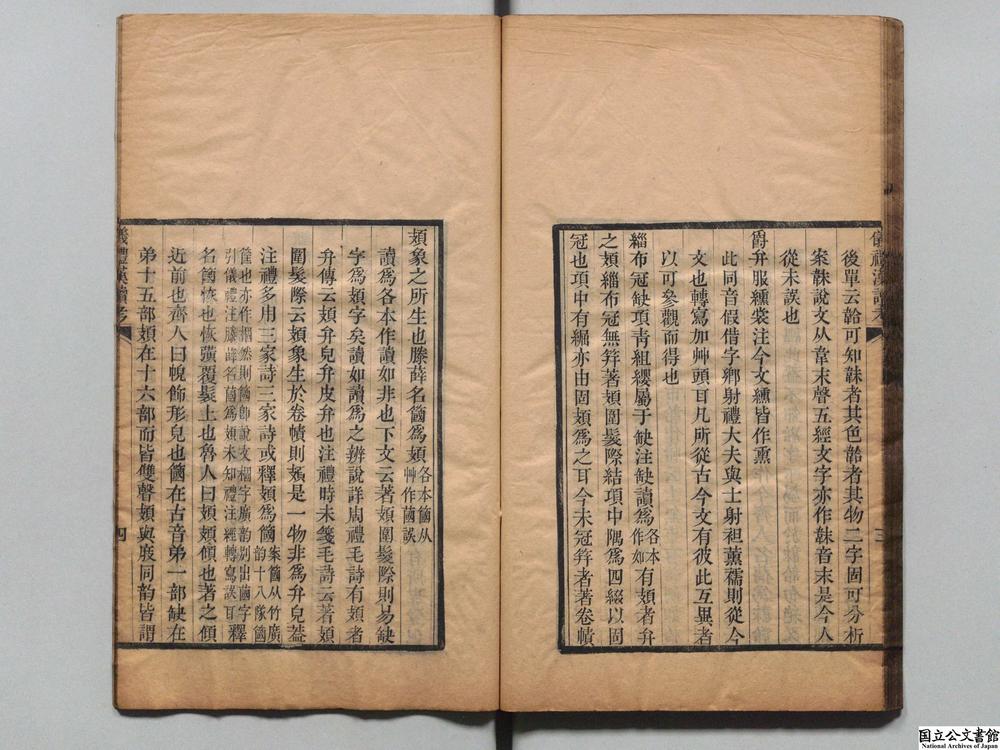 後單云韐可知韎者其色韐者其物二字固可分析
案韎說文从韋末聲五經文字亦作韎音末是今人
從未誤也
爵弁服纁裳注今文纁皆作熏
此同音假借字鄉射禮大夫與士射袒薰襦則從今
文也轉寫加艸頭耳凡所從古今文有彼此互異者
以可參觀而得也
緇布冠缺項青組纓屬于缺注缺讀爲各本作如有頍者弁
之頍緇布冠無筓著頍圍髮際結項中隅爲四綴以固
冠也項中有𦆯亦由固頍爲之耳今未冠筓者著卷幘
頍象之所生也滕薛名簂爲頍各本簂从艸作蔮誤
讀爲各本作讀如非也下文云著頍圍髮際則易缺
字爲頍字矣讀如讀爲之辨說詳周禮毛詩有頍者
弁傳云頍弁皃弁皮弁也注禮時未箋毛詩云著頍
圍髮際云頍象生於卷幘則頍是一物非爲弁皃葢
注禮多用三家詩三家詩或釋頍爲簂案簂从竹廣韵十八隊簂
筐也亦作槶然則簂卽說文槶字廣韵別出蔮字引儀禮注滕薛名蔮爲頍未知禮注經轉寫誤耳釋
名簂恢也恢廓覆髮上也魯人曰頍頍傾也著之傾
近前也齊人曰㡋飾形皃也簂在古音弟一部缺在
弟十五部頍在十六部而皆雙聲頍與㡋同韵皆謂
儀禮漢讀考
三
儀禮漢讀考
四
国立公文書館
National Archives of Japan